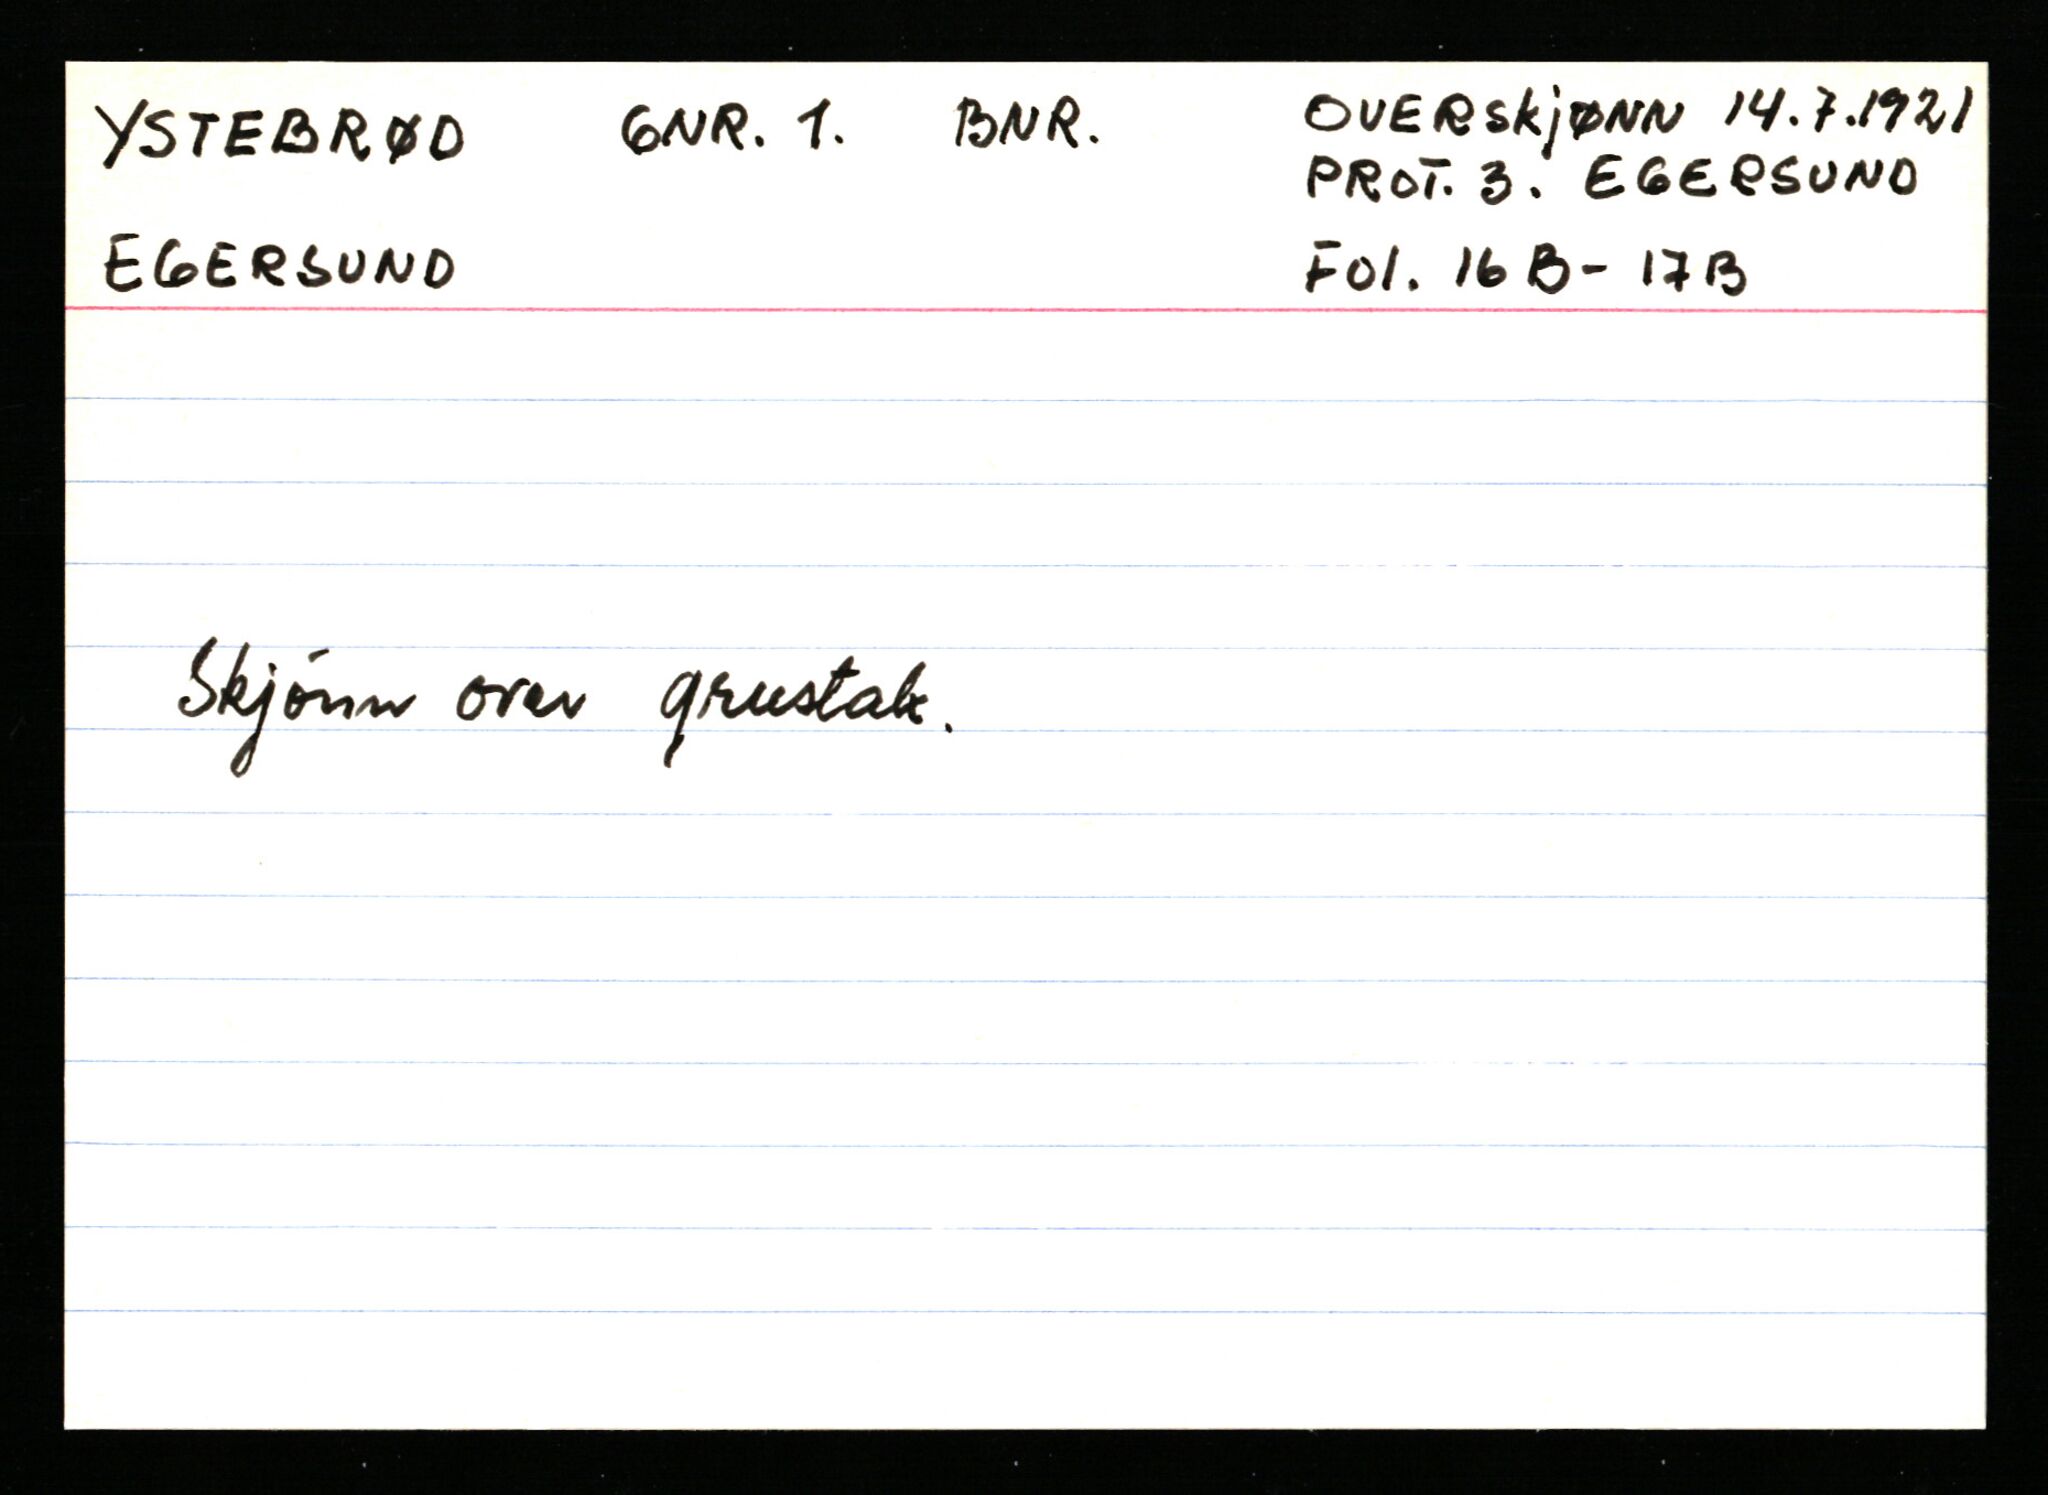 YSTEBRØD GNR. 1. BNR. OVERSKJØNN 14.7.1921
PROT. 3. EGERSUND
EGERSUND Fol. 16B - 17B
Skjønn over grustak.